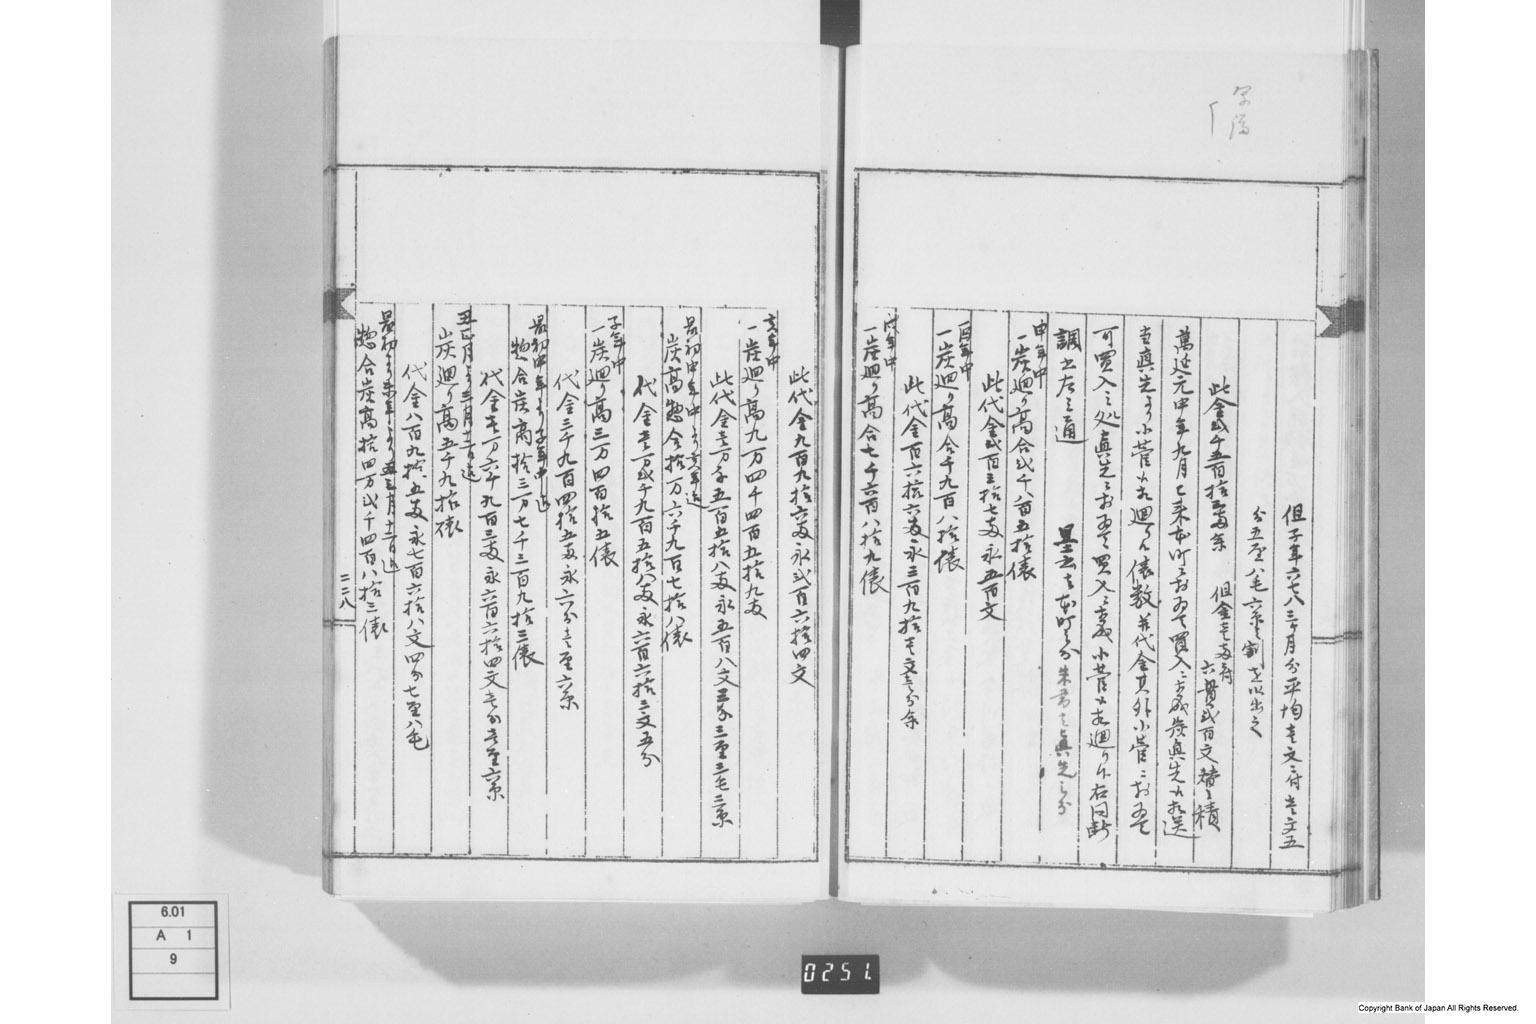 但子年六七八三ヶ月分平均壱文ニ付壱文五
分五厘八毛六糸之割を以出之
此金弐千五百拾五両余
但金壱両ニ付
六貫弐百文替之積
萬延元申年九月已来本町ニおゐて買入ニ相成炭真先江相送
当真先より小菅江相廻り候俵数并代金其外小菅ニおゐて
可買入之処真先ニおゐて買入ニ相成小菅江相廻り候右同断
調書左之通
墨書者本町之分朱書者真先之分
申年中
一炭廻り高合弐千八百五拾俵
此代金弐百三拾七両永五百文
酉年中
一炭廻り高合千九百八拾俵
此代金百六拾六両永三百九拾壱文壱分余
戌年中
一炭廻り高合七千六百八拾九俵
此代金九百九拾六両永弐百六拾四文
亥年中
一炭廻り高九万四千四百五拾九俵
此代金壱万千五百五拾八両永五百八文三分三厘三毛三糸
最初申年中より亥年迄
炭高惣合拾万六千九百七拾八俵
代金壱万弐千九百五拾八両永六百六拾三文五分
子年中
一炭廻り高三万四百拾五俵
代金三千九百四拾五両永六分壱厘六糸
最初申年より子年中迄
惣合炭高拾三万七千三百九拾三俵
代金壱万六千九百三両永六百六拾四文壱分壱厘六糸
丑正月より三月十二日迄
炭廻り高五千九拾俵
代金八百九拾五両永七百六拾八文四分七厘八毛
最初より丑三月十二日迄
惣合炭高拾四万弐千四百八拾三俵
二二八
6.01
A 1
9
0251.
Copyright Bank of Japan All Rights Reserved.